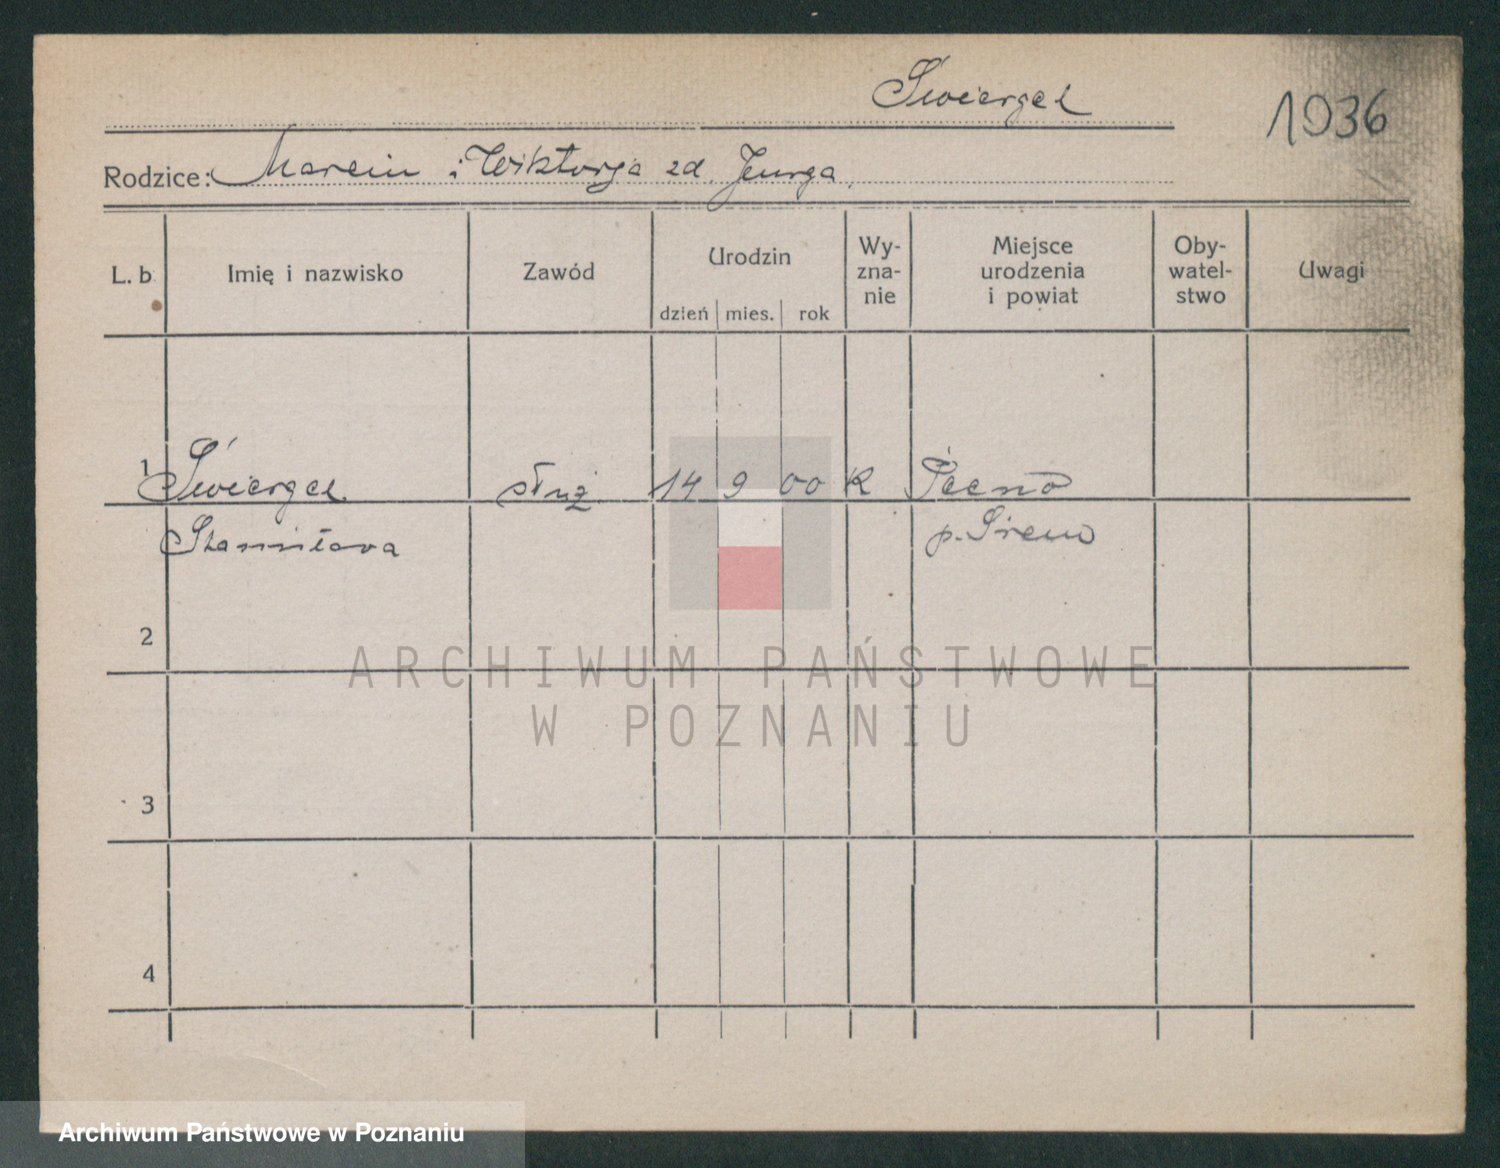 Świergeł
1036
Rodzice: Marcin i Wiktorja zd. Jurga.
L. b. Imię i nazwisko Zawód Urodzin dzień mies. rok Wy-zna-nie Miejsce urodzenia i powiat Oby-watel-stwo Uwagi
1 Świergeł służ 14 9 00 K
Stanisława p. Śrem
2
ARCHIWUM PAŃSTWOWE
W POZNANIU
3
4
Archiwum Państwowe w Poznaniu